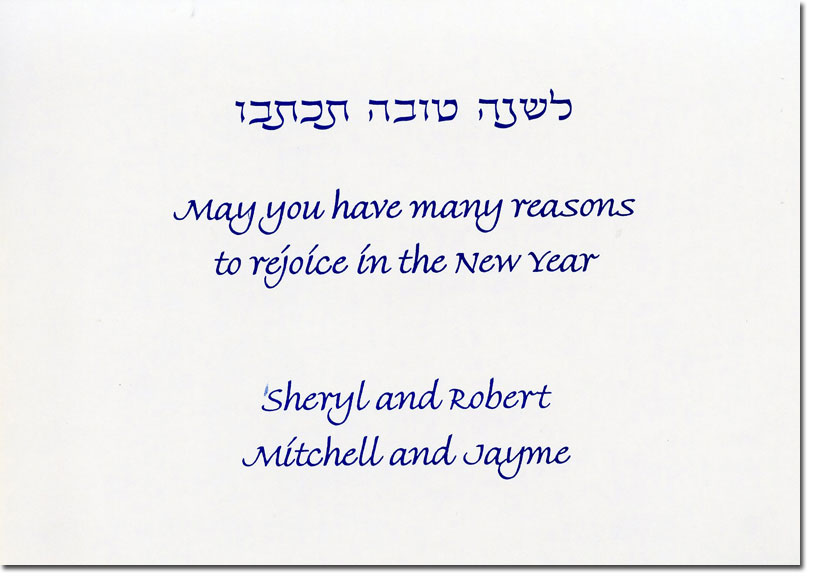 לשנה טובה תכתבו
May you have many reasons
to rejoice in the New Year
Sheryl and Robert
Mitchell and Jayme